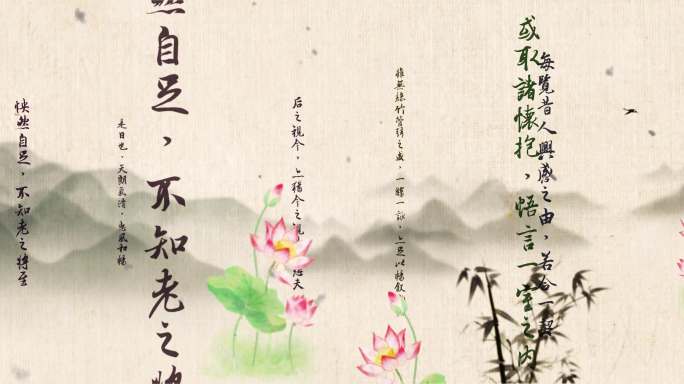 每覽昔人興感之由，若合一契
或取諸懷抱，悟言一室之內
雖無絲竹管弦之盛，一觴一詠，亦足以暢敘
后之視今，亦猶今之視
夫
然自足，不知老之將
是日也，天朗氣清，惠風和暢
怏然自足，不知老之將至